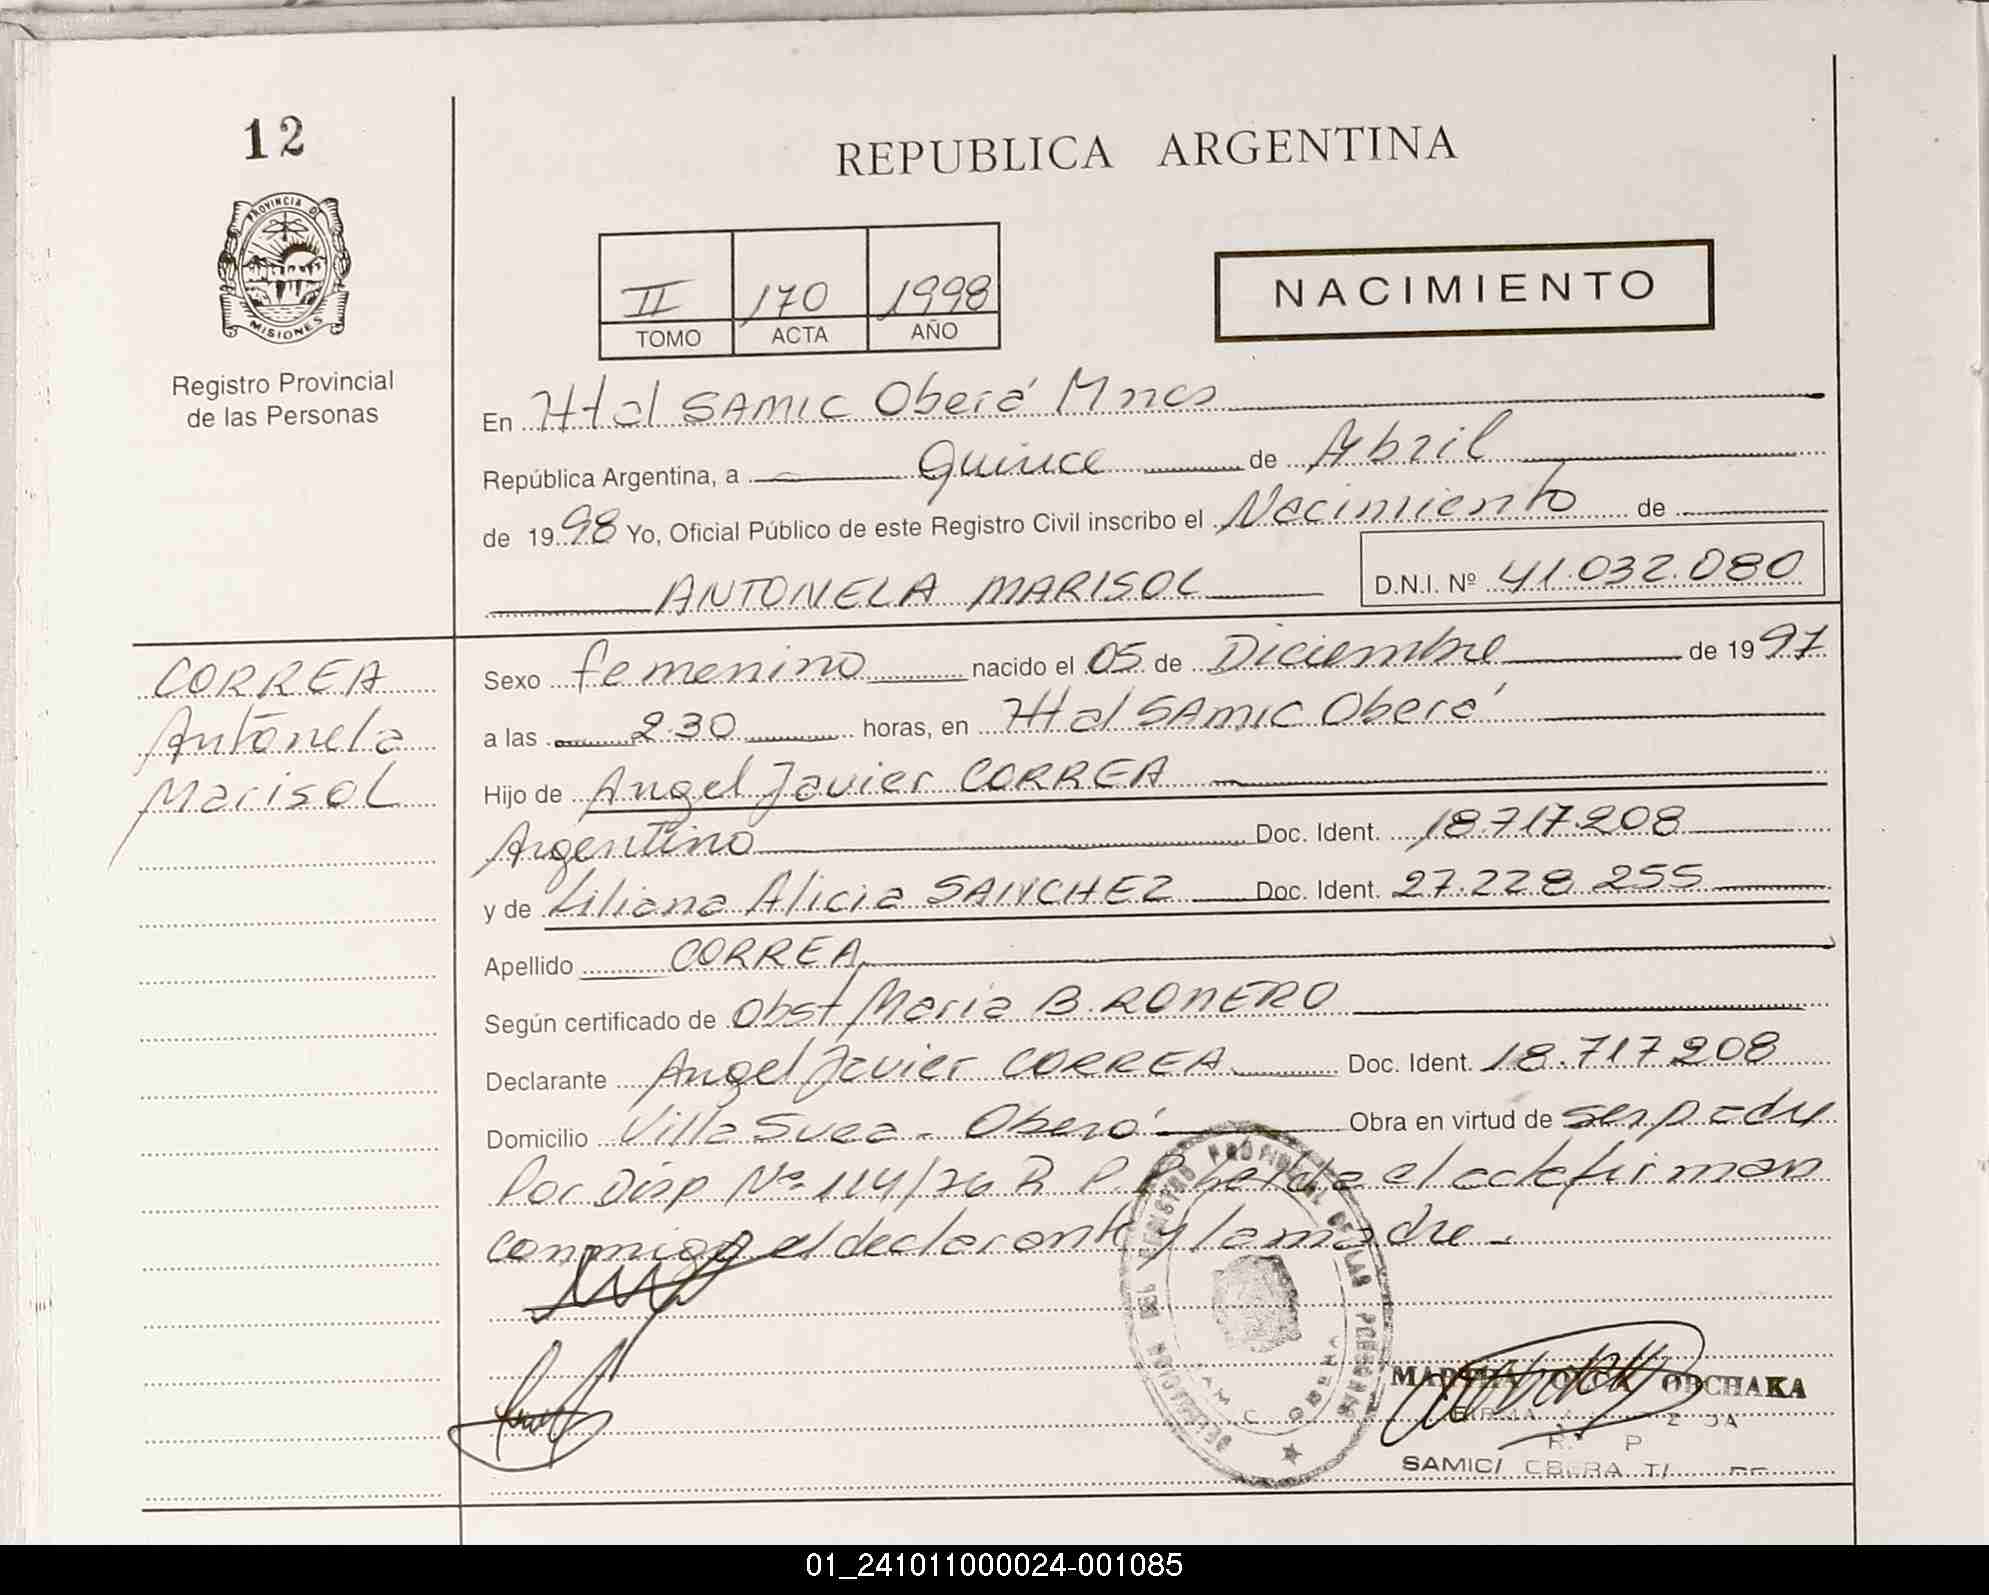 12
REPUBLICA ARGENTINA
PROVINCIA DE
MISIONES
Registro Provincial
de las Personas
II 170 1998
TOMO ACTA AÑO
NACIMIENTO
En Htal SAMIC Oberá Mnes
República Argentina, a Quince de Abril
de 1998 Yo, Oficial Público de este Registro Civil inscribo el Nacimiento de
ANTONELA MARISOL D.N.I. Nº 41.032.080
CORREA
Antonela
Marisol
Sexo femenino nacido el 05 de Diciembre de 1997
a las 2.30 horas, en Htal SAMIC Oberá
Hijo de Angel Javier CORREA
Argentino Doc. Ident. 18.717.208
y de Liliana Alicia SANCHEZ Doc. Ident. 27.228.255
Apellido CORREA
Según certificado de Obst Maria B. ROMERO
Declarante Angel Javier CORREA Doc. Ident. 18.717.208
Domicilio Villa Svea - Oberá Obra en virtud de ser padre
Por Disp Nº 114/76 R. P. P. leida el acta firman
conmigo el declarante y la madre.
DELEGACION DEL REGISTRO PROVINCIAL DE LAS PERSONAS
SAMIC
01_241011000024-001085